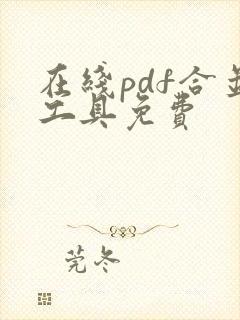 在线pdf合并
工具免费
莞冬